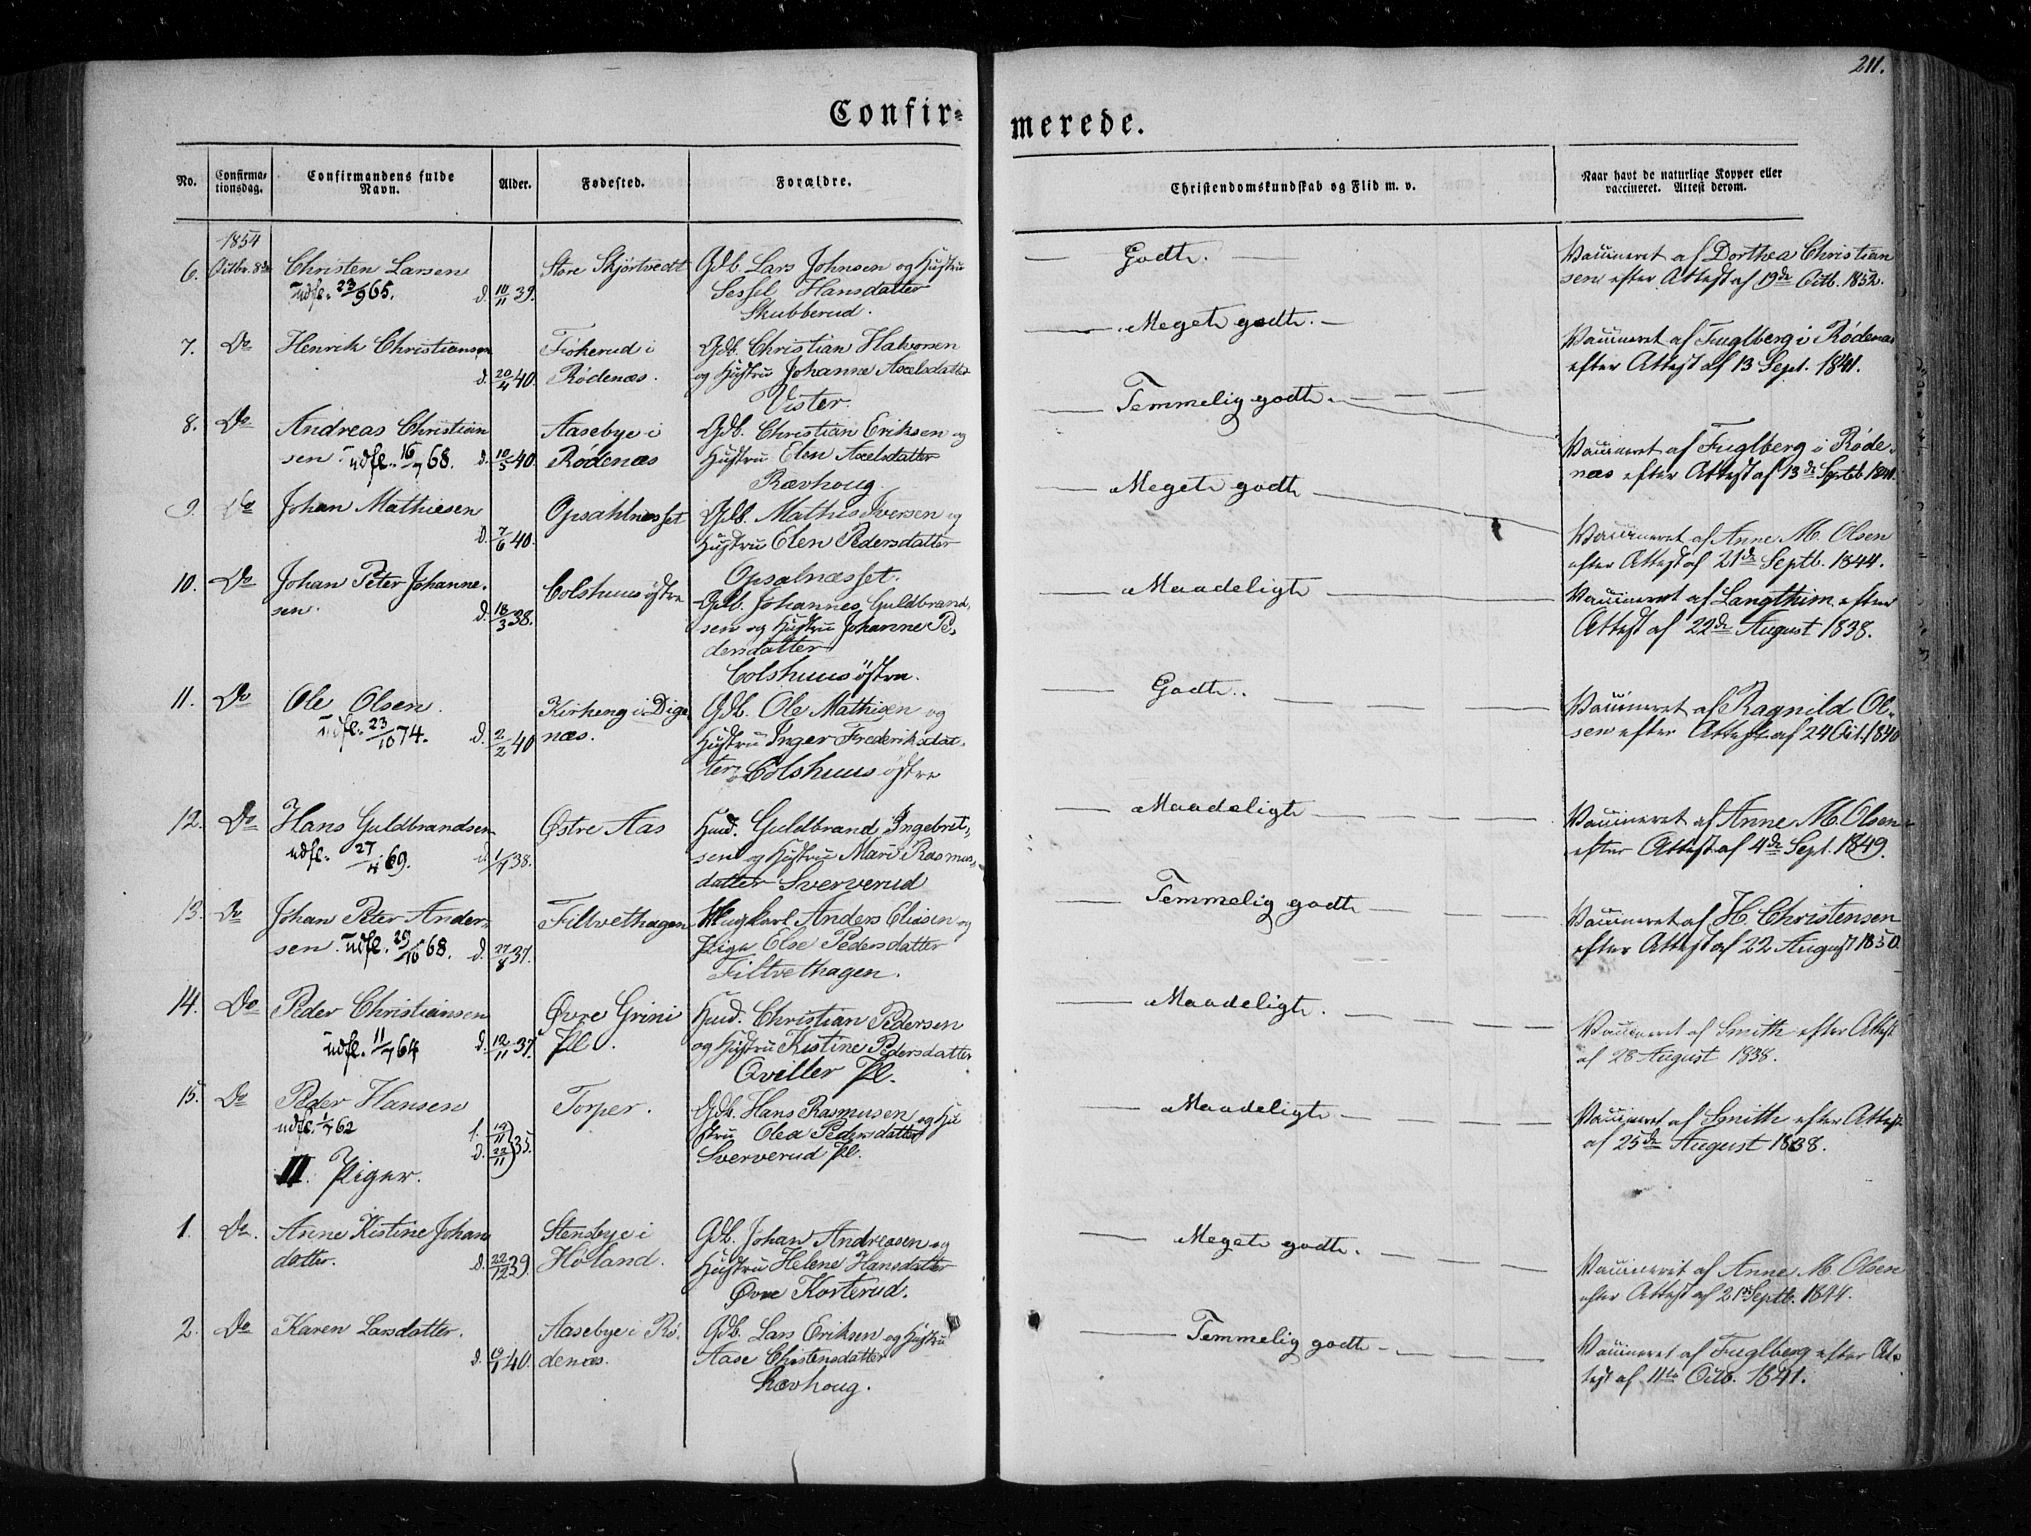 211.
Confir-
merede.
No.
Confirma-
tionsdag.
Confirmandens fulde
Navn.
Alder.
Fødested.
Forældre.
Christendomskundskab og Flid m. v.
Naar havt de naturlige Kopper eller
vaccineret. Attest derom.
1854
6. Octbr. 8de Christen Larsen Store Skjørtvedt Gdb. Lars Johnsen og Hustru — Godt. — Vaccineret af Dorthea Christian
udfl. 23/9 65. d. 10/11 39. Sessel Hansdatter sen efter Attest af 19de Octb. 1852.
Skubberud.
7. Do Henrik Christiansen i Gdb. Christian Halvorsen — Meget godt. — Vaccineret af Fuglberg i Rødenæs
d. 20/4 40. Rødenæs. og Hustru Johanne Axelsdatter efter Attest af 13 Sept. 1841.
Vister.
8. Do Andreas Christian Aasebye i Gdb. Christian Eriksen og — Temmelig godt. — Vaccineret af Fuglberg i Røde-
sen. udfl. 16/7 68. d. 10/5 40. Rødenæs Hustru Elen Axelsdatter næs efter Attest af 13de Septb. 1841.
Rævhoug.
9. Do Johan Mathiesen Opsahlnæsset Gdb. Mathis Iversen og — Meget godt — Vaccineret af Anne M. Olsen
d. 7/6 40. Hustru Elen Pedersdatter efter Attest af 21de Septb. 1844.
Opsalnæsset.
10. Do Johan Peter Johanne- Colshuus østre Gdb. Johannes Guldbrand- — Maadeligt — Vaccineret af Langthim efter
sen. d. 18/3 38. sen og Hustru Johanne Pe- Attest af 22de August 1838.
dersdatter
Colshuus østre.
11. Do Ole Olsen. Kirkeng i Dige Gdb. Ole Mathisen og — Godt. — Vaccineret af Ragnild Ol-
udfl. 23/10 74. d. 2/2 40 næs. Hustru Inger Frederiksdat- sen efter Attest af 24 Oct. 1840
ter Colshuus østre
12. Do Hans Guldbrandsen Østre Aas Huud. Guldbrand Ingebret- — Maadeligt — Vaccineret af Anne M. Olsen
udfl. 27/4 69. d. 1/7 38. sen og Hustru Mari Rasmus- efter Attest af 4de Sept. 1849.
datter Sververud
13. Do Johan Peter Ander- Filtvethagen Ungkarl Anders Eliasen og — Temmelig godt — Vaccineret af H Christensen
sen. udfl. 29/10 68. d. 27/8 37. Pige Else Pedersdatter efter Attest af 22 August 1850.
Filtvethagen.
14. Do Peder Christiansen Øvre Grini Huud. Christian Pedersen — Maadeligt. — Vaccineret af Smith efter Attest
udfl. 11/7 64 d. 12/11 37. Pl. og Hustru Kistine Pedersdatter af 28 August 1838.
Qveller Pl.
15. Do Peder Hansen Torper. Gdb. Hans Rasmusen og Hu — Maadeligt — Vaccineret af Smith efter Attest
udfl. 1/7 62 f. 17/11 stru Olea Pedersdatter af 25de August 1838.
d. 22/11 35. Sververud Pl.
II. Piger.
1. Do. Anne Kistine Johans Stensbye i Gdb. Johan Andreasen og — Meget godt. — Vaccineret af Anne M. Olsen
datter. d. 22/12 39. Høland. Hustru Helene Hansdatter efter Attest af 21de Septb. 1844.
Øvre Korterud.
2. Do Karen Larsdatter. Aasebye i Rø- Gdb. Lars Eriksen og Hustru — Temmelig godt — Vaccineret af Fuglberg efter At-
d. 40. denæs. Aase Christensdatter test af 11te Octb. 1841.
Rævhoug.